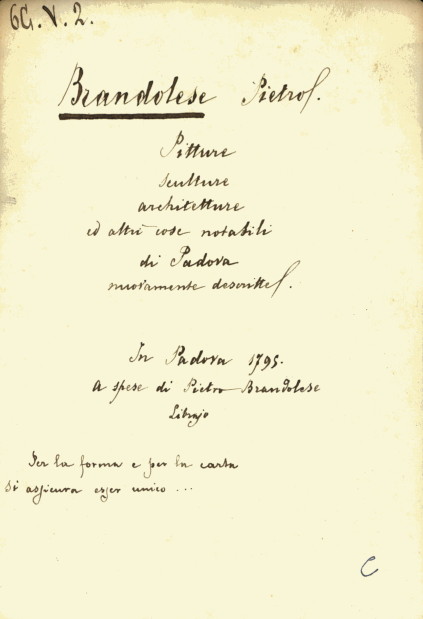 6G. V. 2.
Brandolese Pietro.
Pitture
sculture
architetture
ed altre cose notabili
di Padova
nuovamente descritte.
In Padova 1795.
A spese di Pietro Brandolese
Librajo
Per la forma e per la carta
si assicura esser unico ...
C